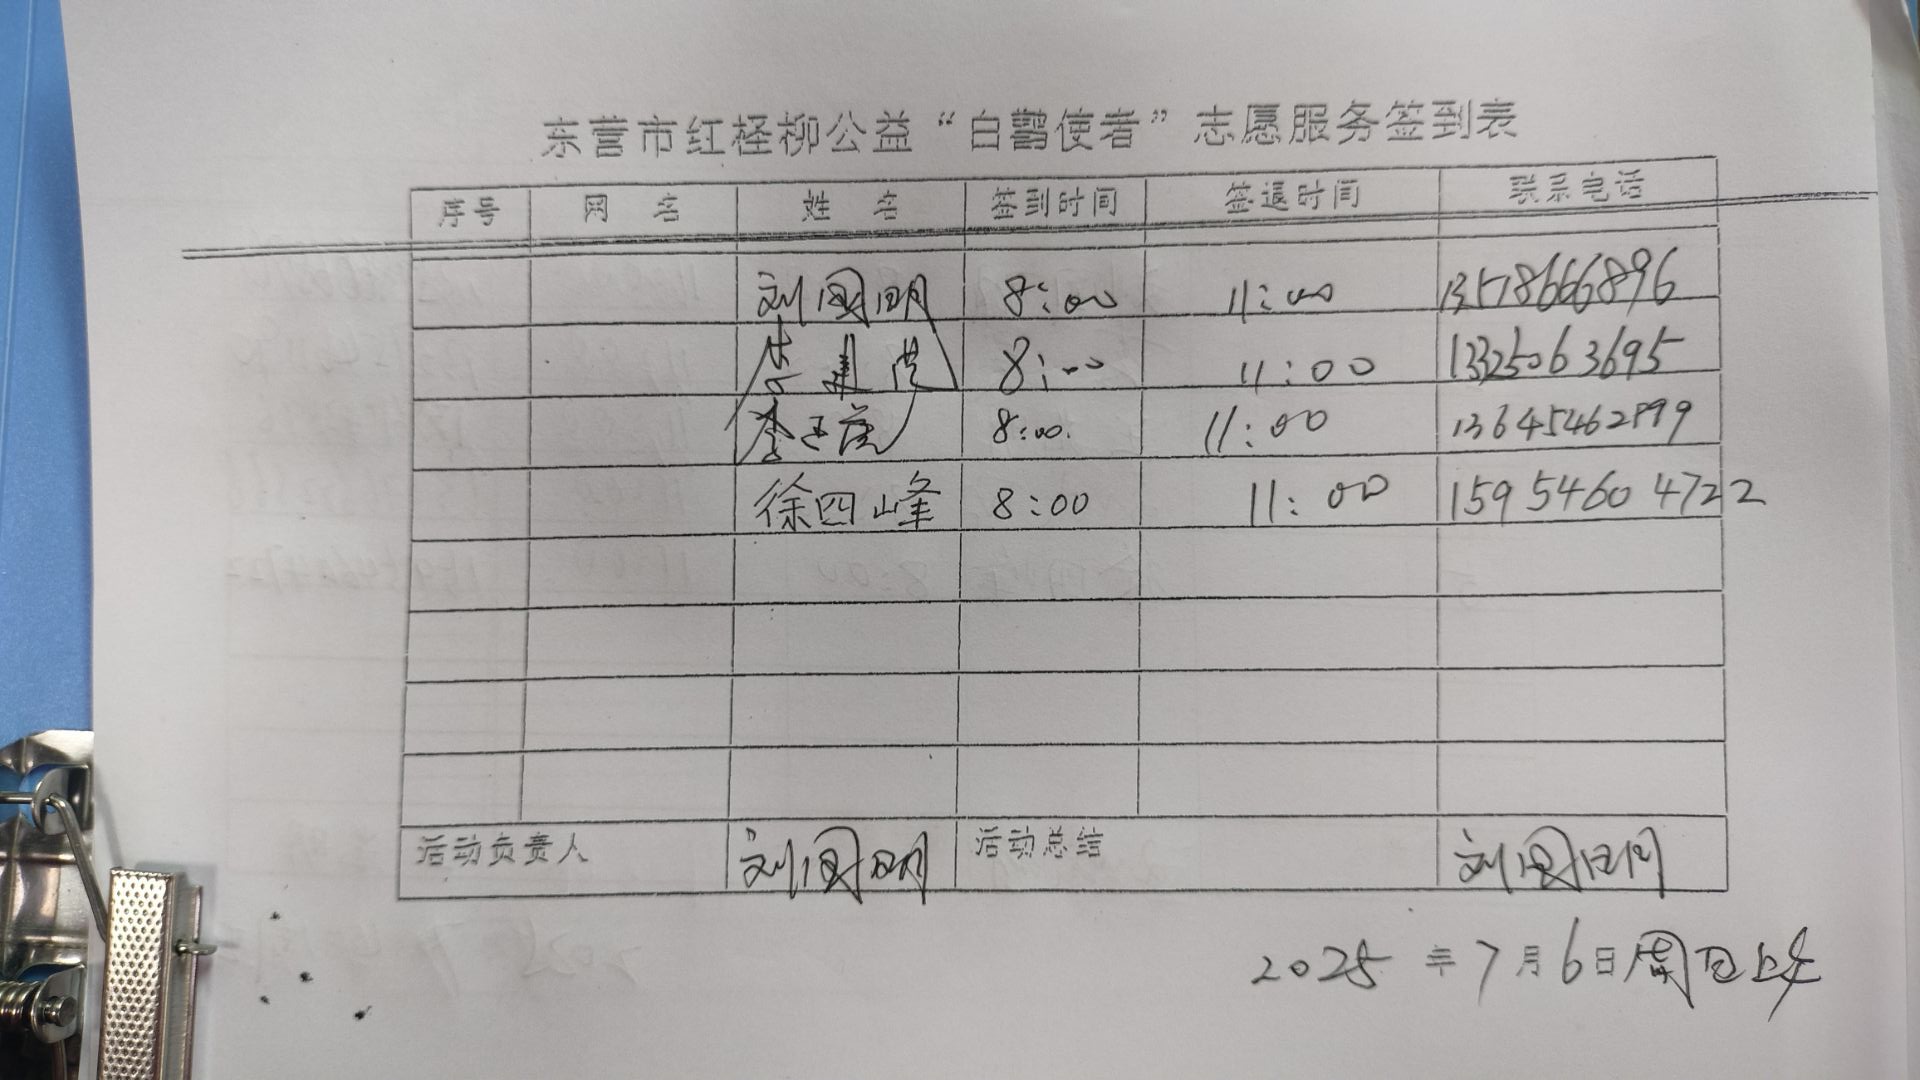 东营市红柽柳公益“白鹳使者”志愿服务签到表
序号 网名 姓名 签到时间 签退时间 联系电话
刘国明 8:00 11:00 13518666896
8:00 11:00 13325063695
8:00. 11:00 13645462899
徐四峰 8:00 11:00 15954604722
活动负责人 刘国明 活动总结 刘国明
2025年7月6日周日上午